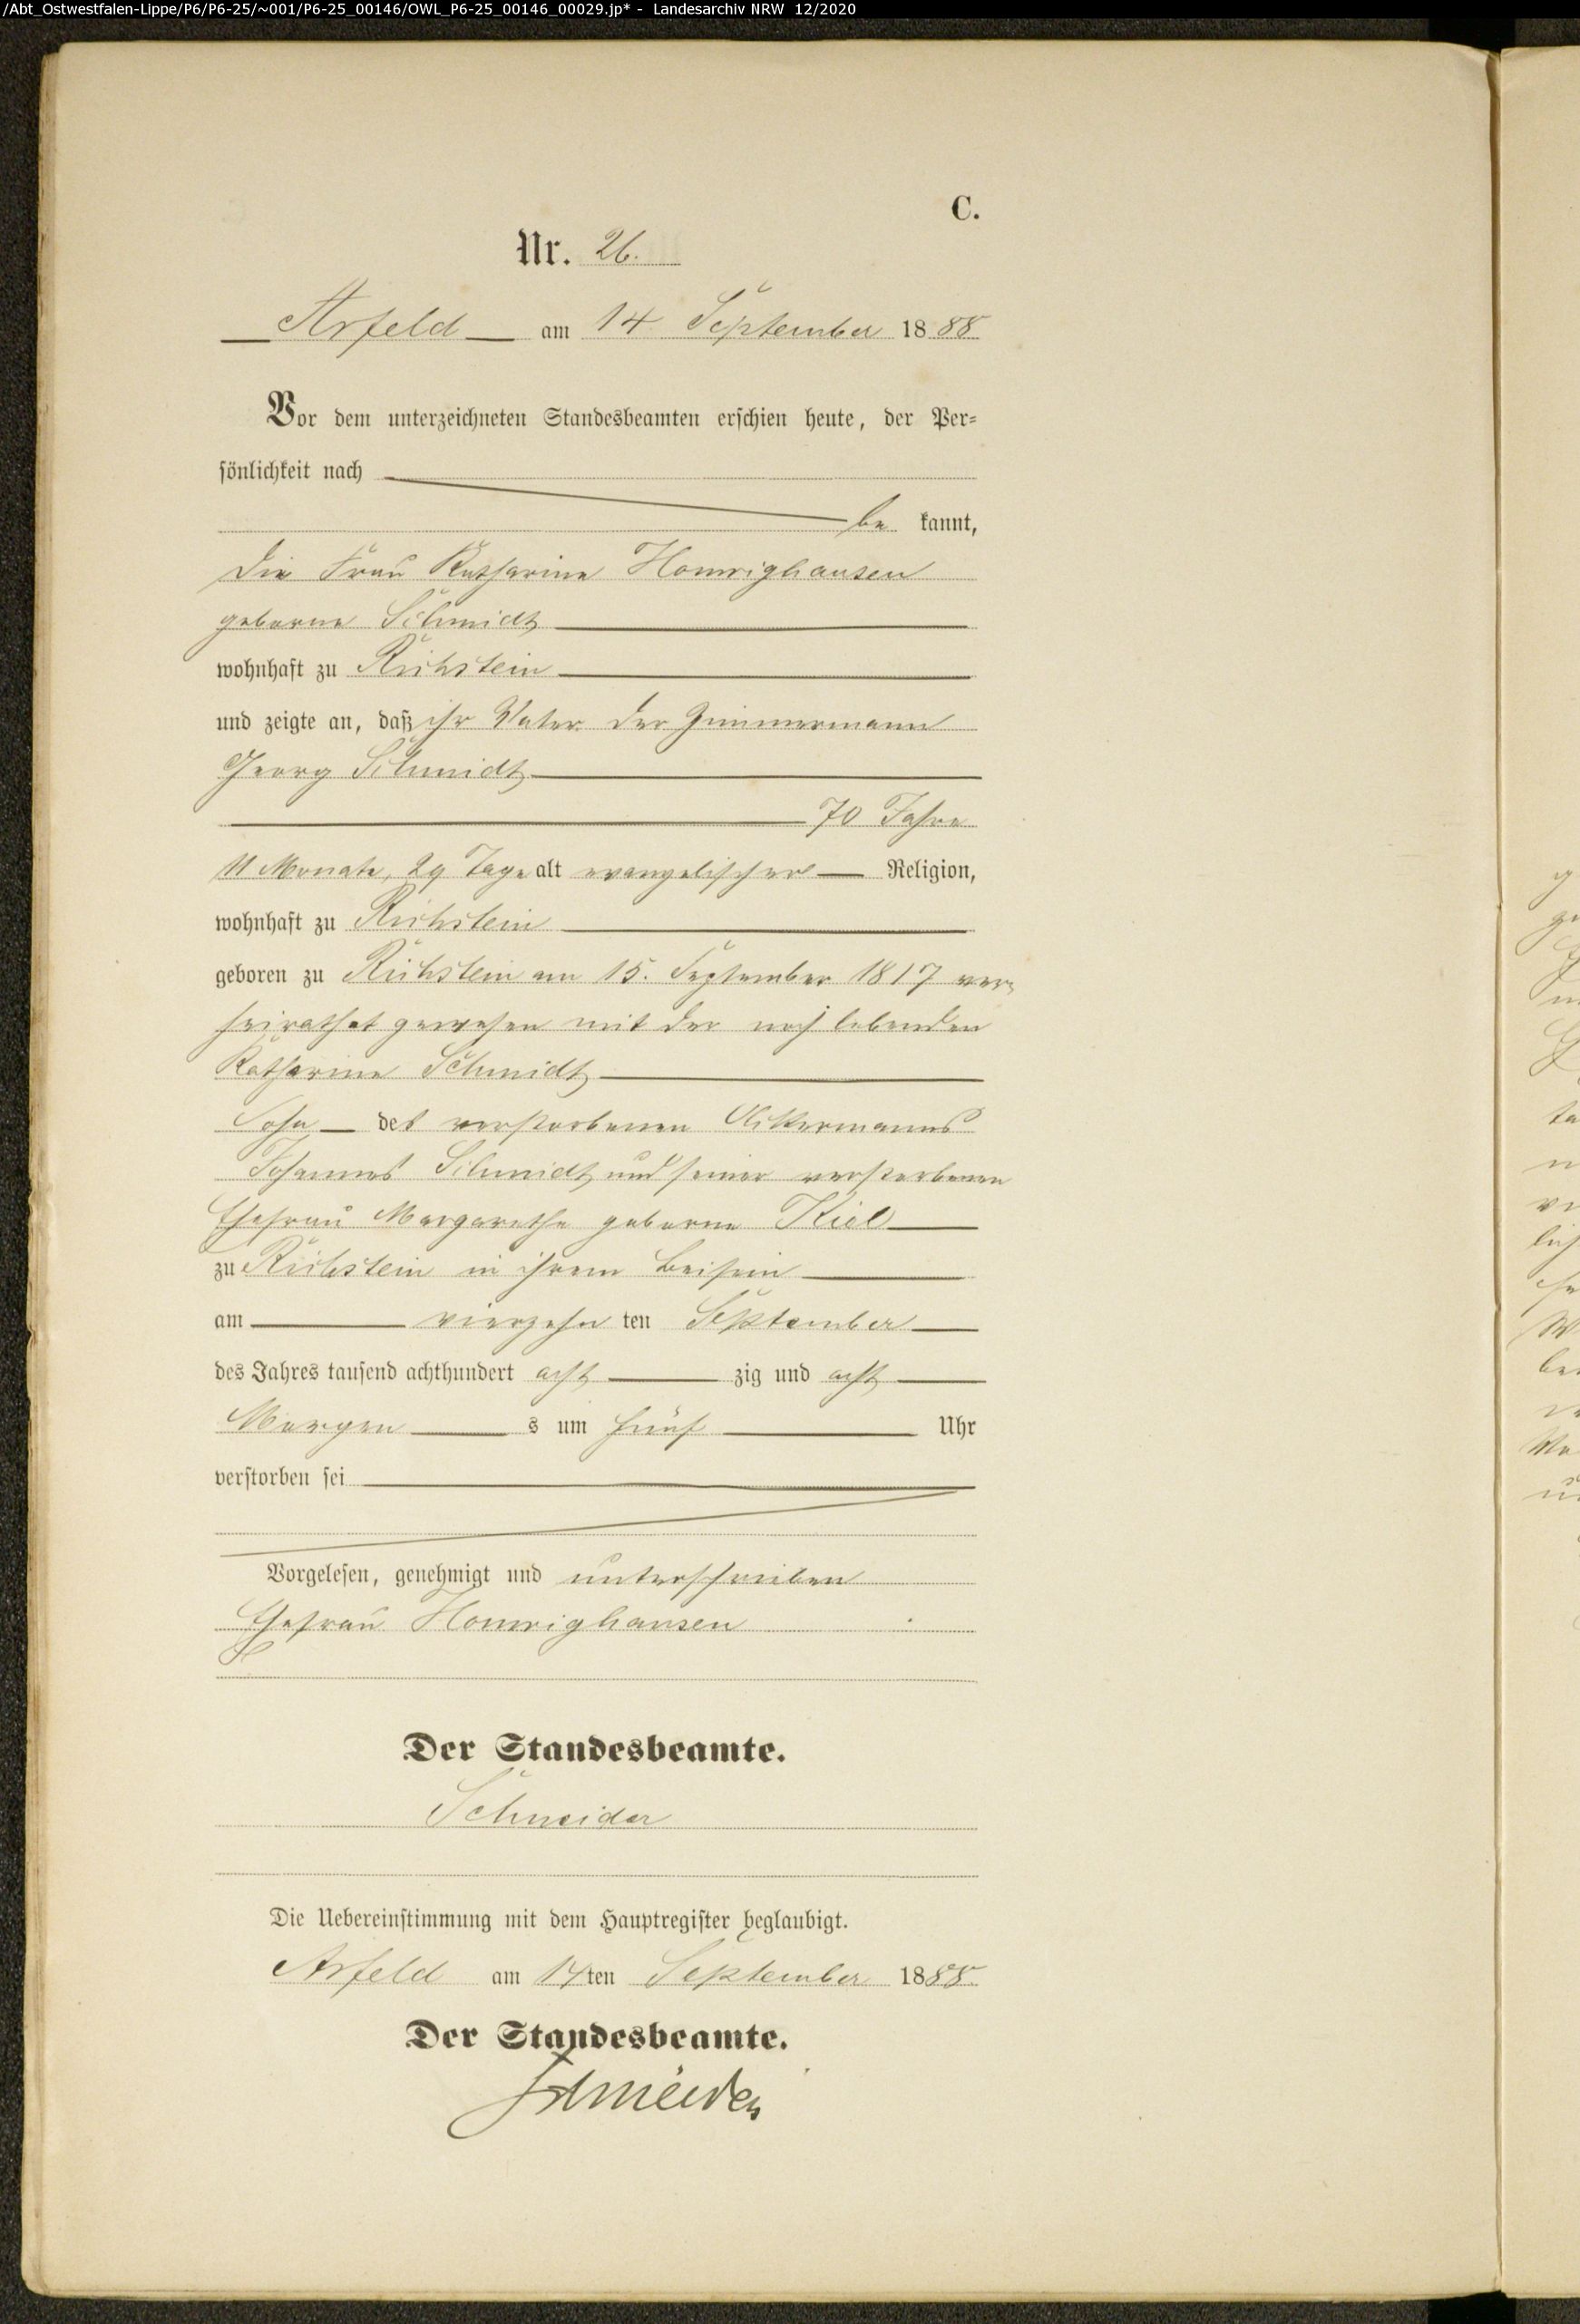 /Abt_Ostwestfalen-Lippe/P6/P6-25/~001/P6-25_00146/OWL_P6-25_00146_00029.jp* - Landesarchiv NRW 12/2020
C.
Nr. 26.
Arfeld am 14 September 1888
Vor dem unterzeichneten Standesbeamten erschien heute, der Per-
sönlichkeit nach
be kannt,
die Frau Katharine Homrighausen
geborne Schmidt
wohnhaft zu Richstein
und zeigte an, daß ihr Vater der Zimmermann
Georg Schmidt
70 Jahre
11 Monate, 29 Tage alt evangelischer Religion,
wohnhaft zu Richstein
geboren zu Richstein am 15. September 1817 ver-
heirathet gewesen mit der noch lebenden
Katharine Schmidt
Sohn des verstorbenen Ackermanns
Johannes Schmidt und seiner verstorbenen
Ehefrau Margarethe geborne Kiel
zu Richstein in ihrem Beisein
am vierzehn ten September
des Jahres tausend achthundert acht zig und acht
Morgen s um fünf Uhr
verstorben sei
Vorgelesen, genehmigt und unterschrieben
Ehefrau Homrighausen
Der Standesbeamte.
Schneider
Die Uebereinstimmung mit dem Hauptregister beglaubigt.
Arfeld am 14ten September 1888
Der Standesbeamte.
Schneider